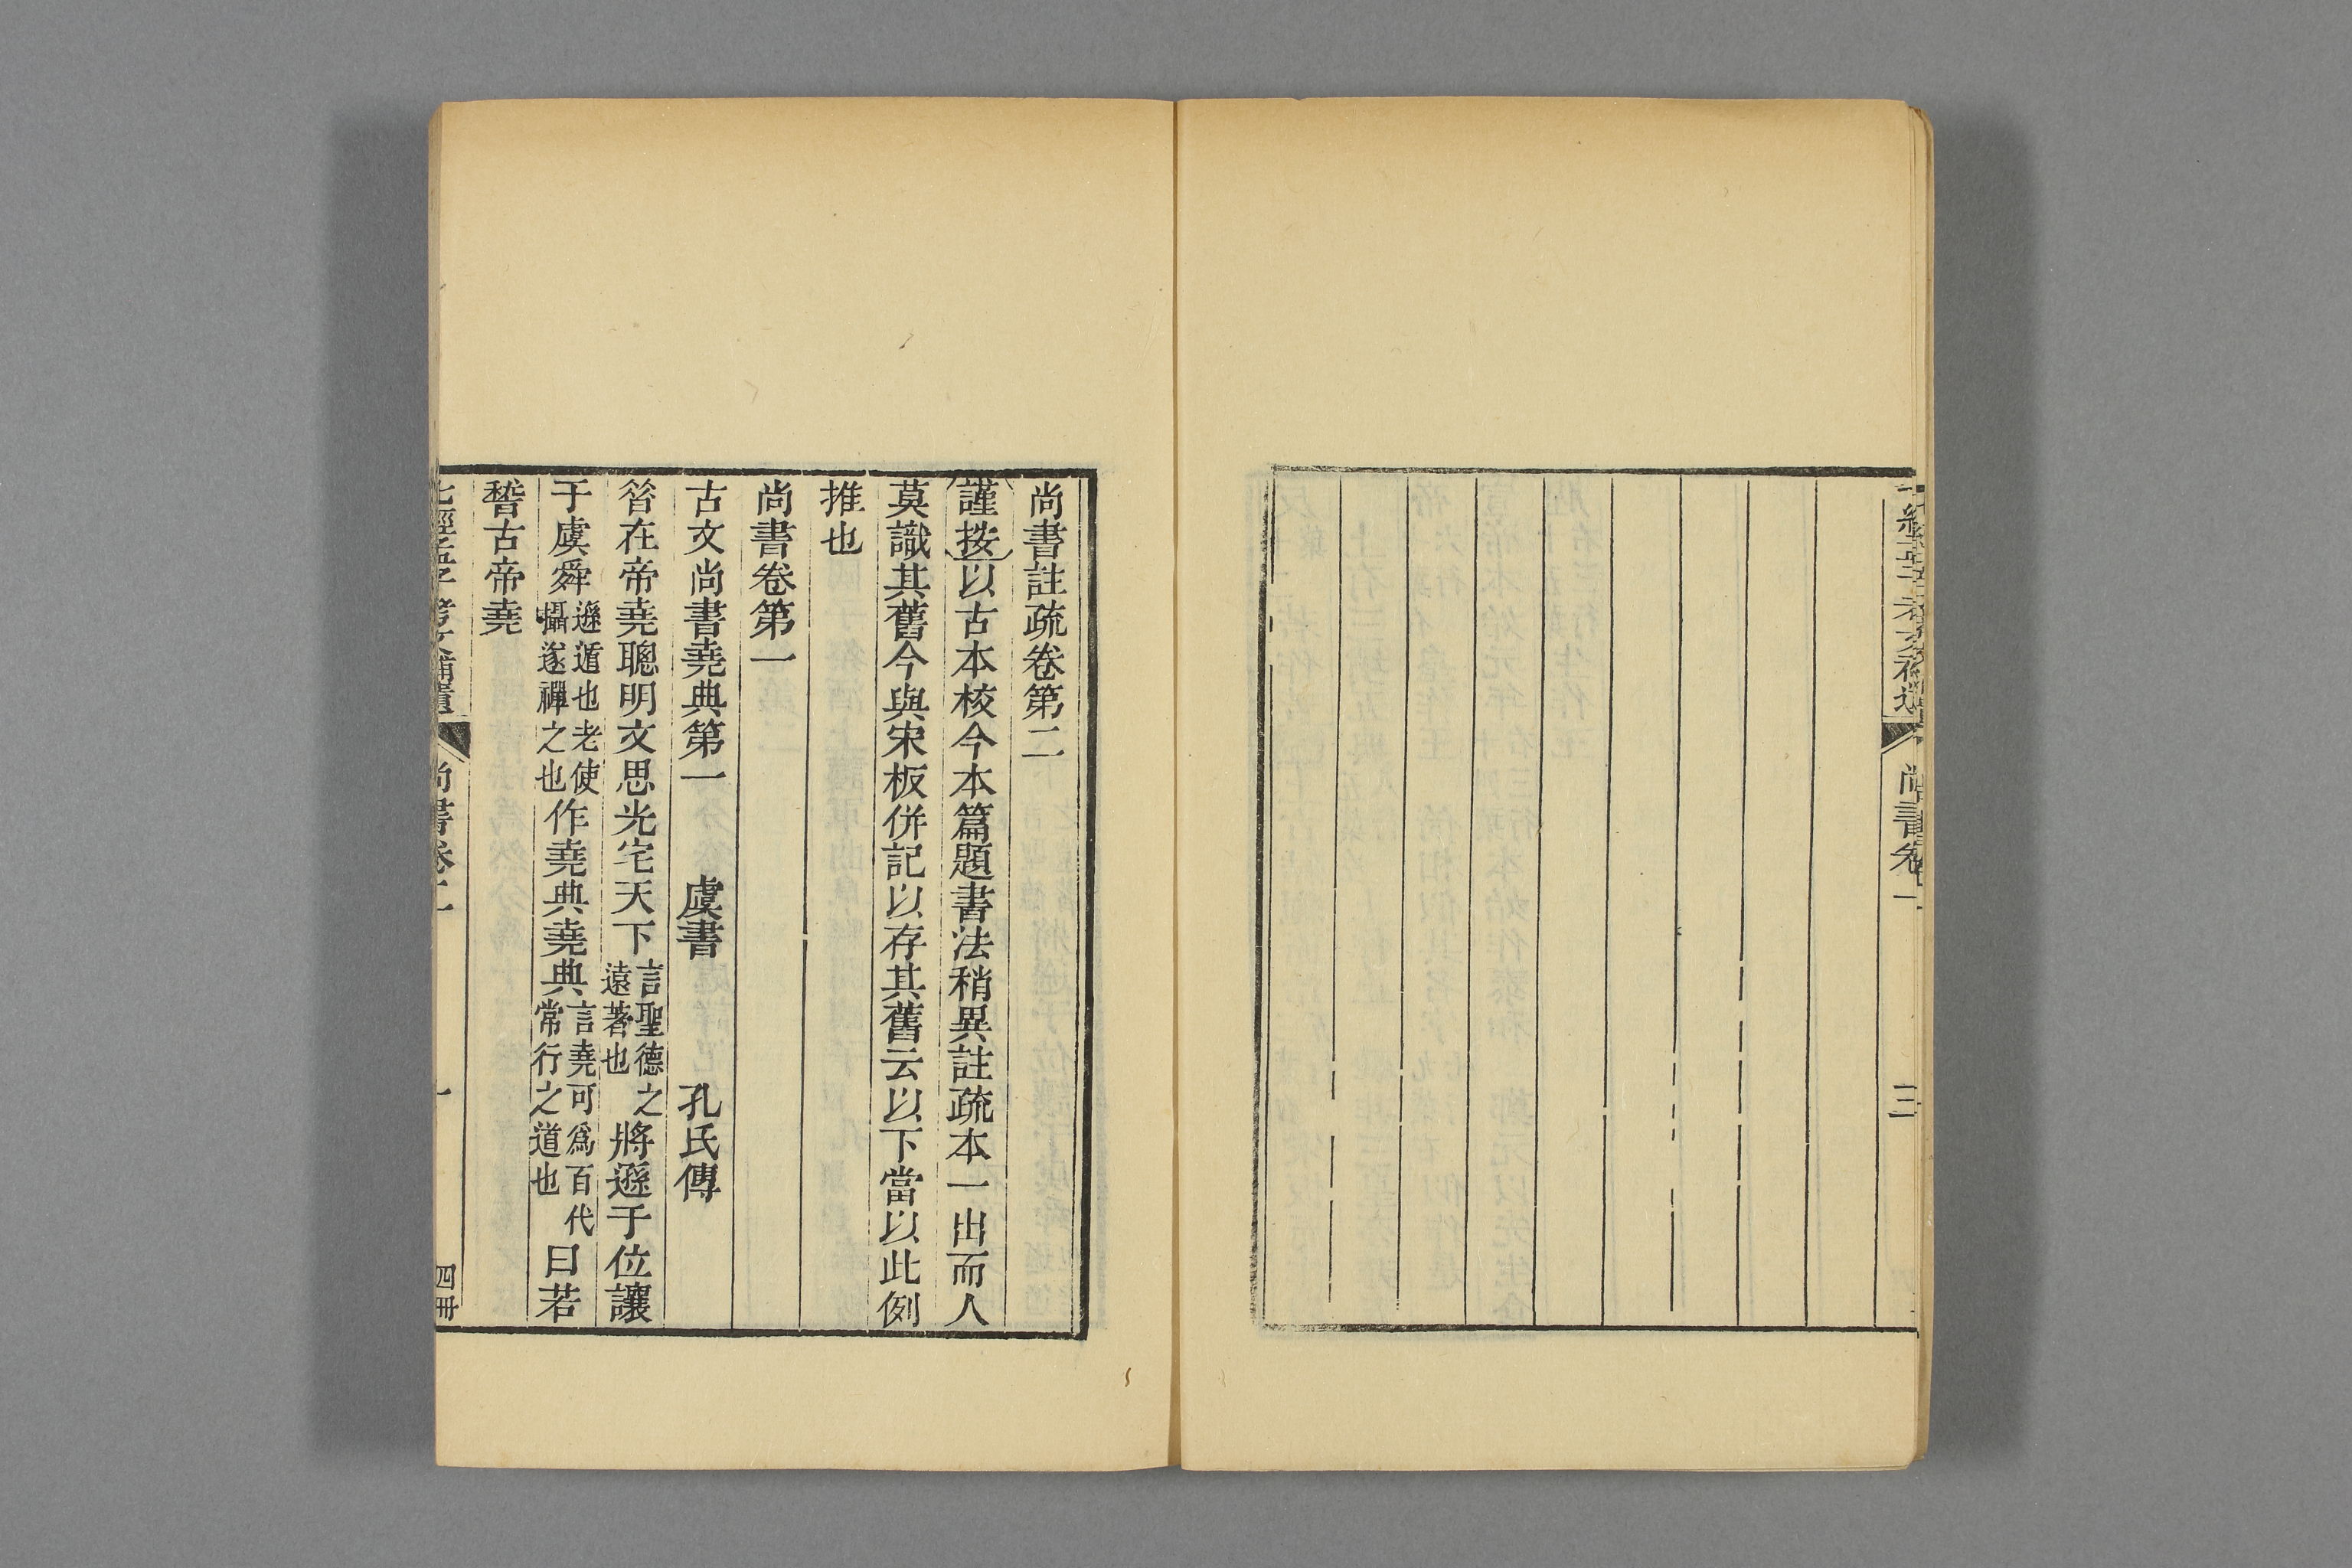 七經孟子考文補遺 尚書卷一 三
尚書註疏卷第二
謹按以古本校今本篇題書法稍異註疏本一出而人
莫識其舊今與宋板併記以存其舊云以下當以此例
推也
尚書卷第一
古文尚書堯典第一 虞書 孔氏傳
昝在帝堯聰明文思光宅天下言聖德之遠著也將遜于位讓
于虞舜遜遁也老使攝遂禪之也作堯典堯典言堯可爲百代常行之道也曰若
稽古帝堯
七經孟子考文補遺 尚書卷二 一 四冊